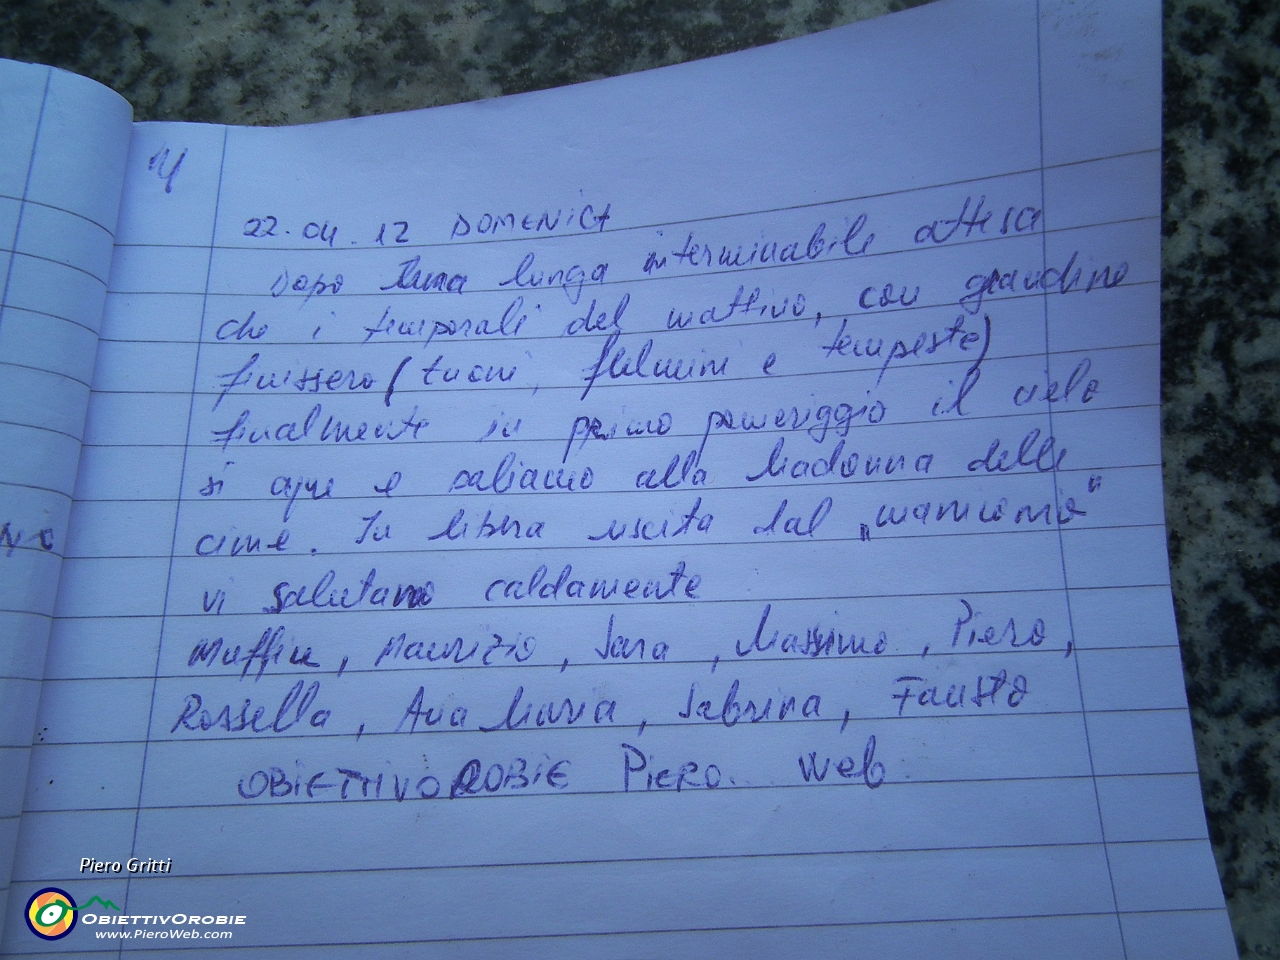 22.04.12 DOMENICA
Dopo una lunga interminabile attesa
che i temporali del mattino, con grandine
finissero (tuoni, fulmini e tempeste)
finalmente in primo pomeriggio il cielo
si apre e saliamo alla Madonna delle
cime. In libera uscita dal „manicomio"
vi salutano caldamente
Muffin, Maurizio, Sara, Massimo, Piero,
Rossella, Ana Maria, Sabrina, Fausto
OBIETTIVOROBIE PIERO.. Web.
Piero Gritti
OBIETTIVOROBIE
www.PieroWeb.com